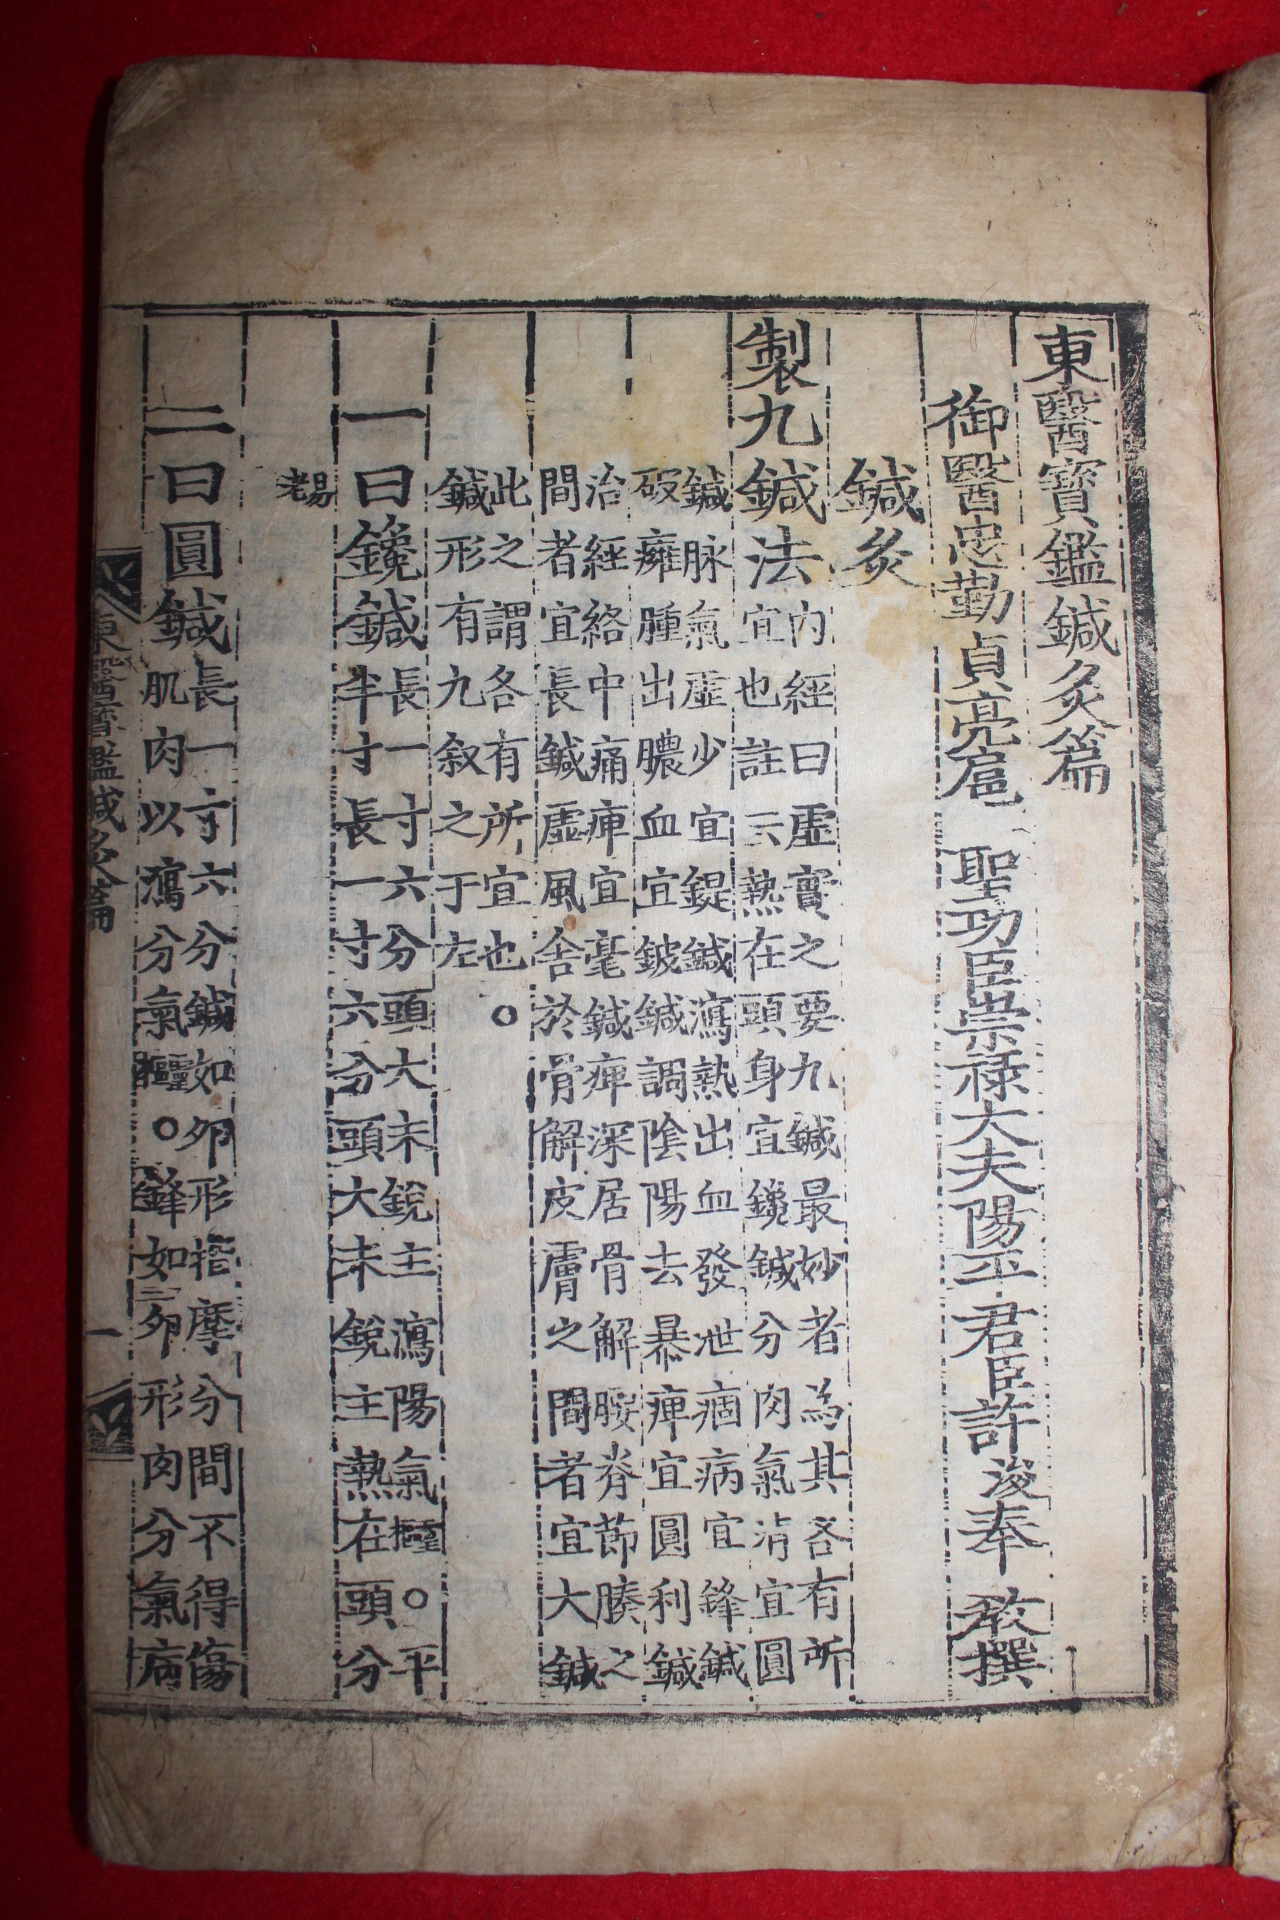 東醫寶鑑鍼灸篇
御醫忠勤貞亮扈聖功臣崇祿大夫陽平君臣許浚奉教撰
鍼灸
製九鍼法 內經曰虛實之要九鍼最妙者為其各有所
宜也註云熱在頭身宜鑱鍼分肉氣滿宜圓
鍼脉氣虛少宜鍉鍼瀉熱出血發泄痼病宜鋒鍼
破癰腫出膿血宜鈹鍼調陰陽去暴痺宜圓利鍼
治經絡中痛痺宜毫鍼痺深居骨解腰脊節腠之
間者宜長鍼虛風舍於骨解皮膚之間者宜大鍼
此之謂各有所宜也○
鍼形有九叙之于左
一曰鑱鍼 長一寸六分頭大末銳主瀉陽氣靈樞○平
半寸長一寸六分頭大末銳主熱在頭分
易老
二曰圓鍼 長一寸六分鍼如卵形揩摩分間不得傷
肌肉以瀉分氣靈樞○鋒如卵形肉分氣病
東醫寶鑑鍼灸篇 一